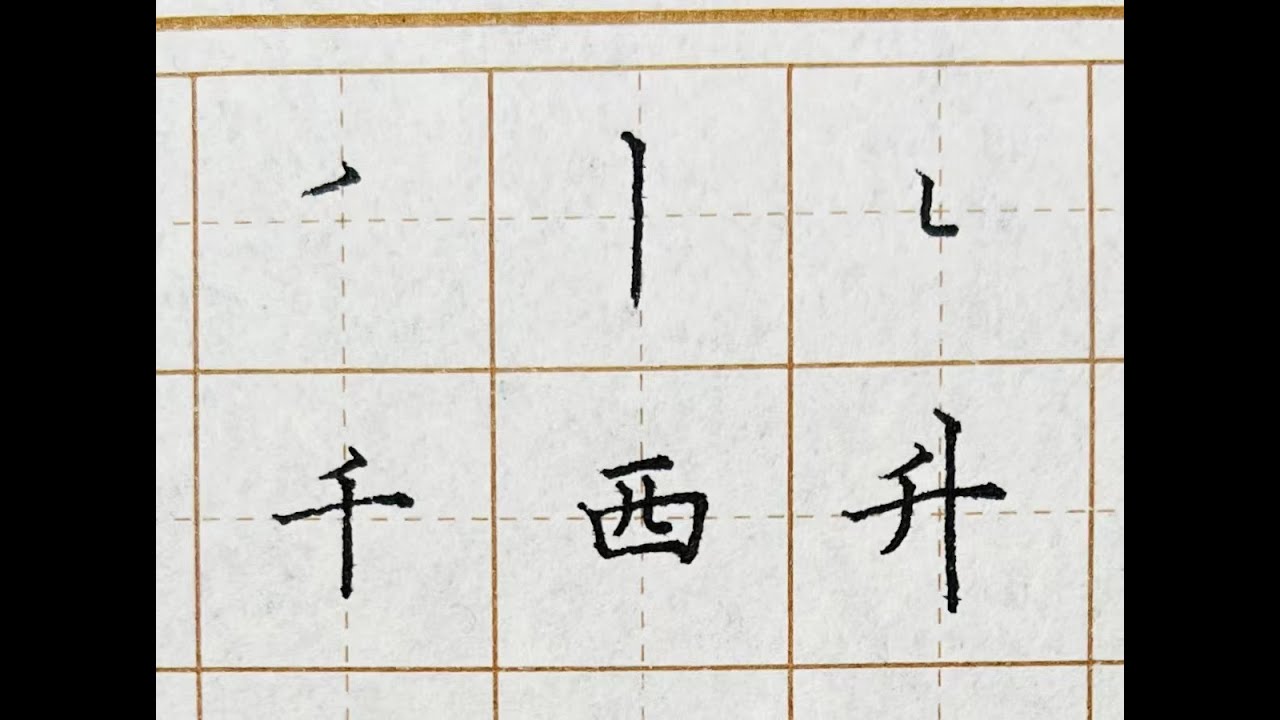 ㇒ 丨 ㇗
千 西 升